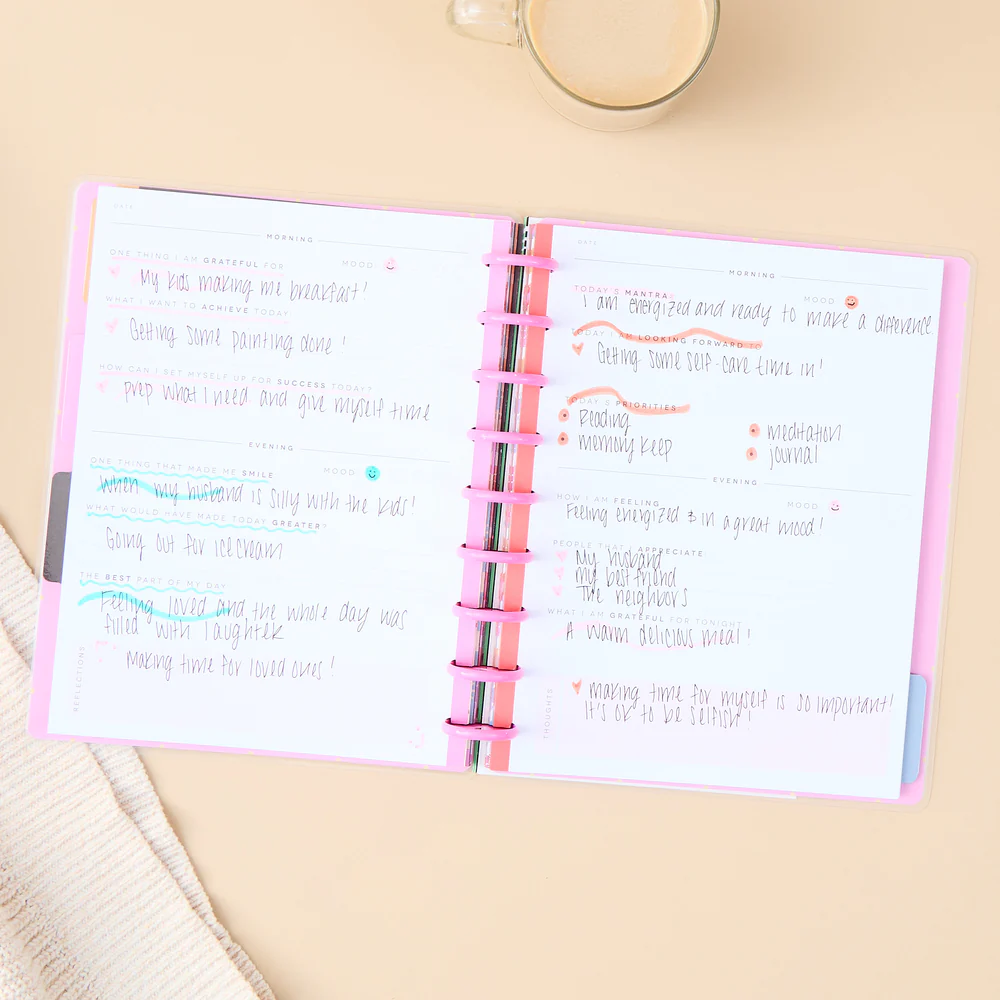 DATE
MORNING
ONE THING I AM GRATEFUL FOR
MOOD
My kids making me breakfast!
WHAT I WANT TO ACHIEVE TODAY
Getting some painting done!
HOW CAN I SET MYSELF UP FOR SUCCESS TODAY?
prep what I need and give myself time
EVENING
ONE THING THAT MADE ME SMILE
MOOD
When my husband is silly with the kids!
WHAT WOULD HAVE MADE TODAY GREATER?
Going out for ice cream
THE BEST PART OF MY DAY
Feeling loved and the whole day was
filled with laughter
REFLECTIONS
Making time for loved ones!
DATE
MORNING
TODAY'S MANTRA
MOOD
I am energized and ready to make a difference
TODAY I AM LOOKING FORWARD TO
Getting some self-care time in!
TODAY'S PRIORITIES
Reading
memory keep
meditation
journal
EVENING
HOW I AM FEELING
MOOD
Feeling energized & in a great mood!
PEOPLE THAT I APPRECIATE
My husband
my best friend
The neighbors
WHAT I AM GRATEFUL FOR TONIGHT
A warm delicious meal!
THOUGHTS
making time for myself is so important!
It's ok to be selfish!